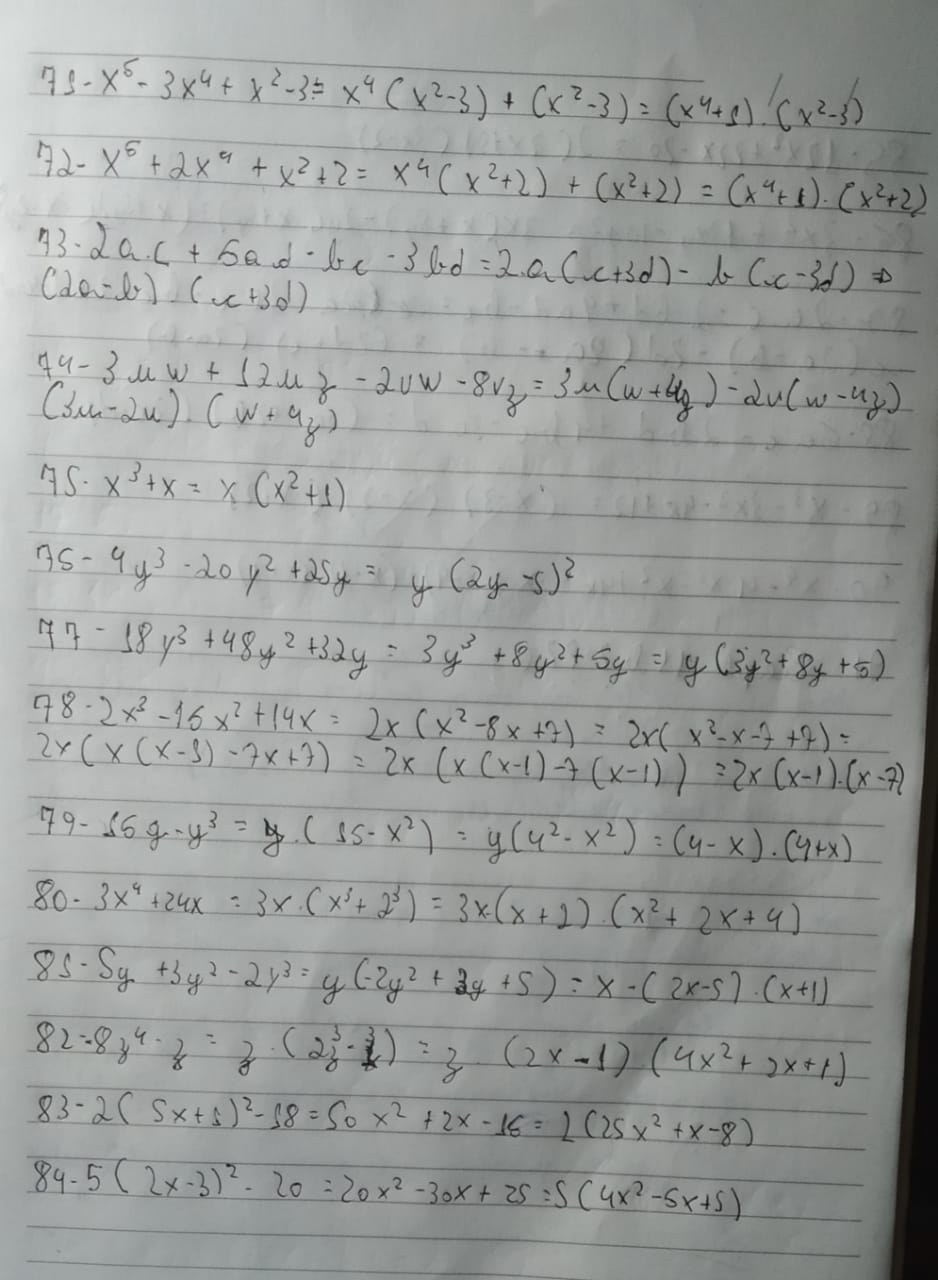 71- x⁶ - 3x⁴ + x² - 3 = x⁴ (x² - 3) + (x² - 3) = (x⁴+1) . (x² - 3)
72- x⁶ + 2x⁴ + x² + 2 = x⁴ (x²+2) + (x²+2) = (x⁴+1) . (x²+2)
73 - 2ac + 6ad - bc - 3bd = 2a (c+3d) - b (c-3d) ⇒
(2a-b) . (c+3d)
74 - 3uw + 12uz - 2vw - 8vz = 3u (w+4z) - 2v (w-4z)
(3u-2u) . (w+4z)
75- x³+x = x (x²+1)
76 - 4y³ - 20y² + 25y = y (2y-5)²
77 - 18y³ + 48y² + 32y = 3y³ + 8y² + 5y = y (3y² + 8y + 5)
78 - 2x³ - 16x² + 14x = 2x (x² - 8x + 7) = 2x( x² - x - 7 + 7) =
2x ( x (x-1) - 7x + 7) = 2x (x (x-1) - 7 (x-1) ) = 2x (x-1).(x-7)
79 - 16y - y³ = y . (16 - x²) = y (4² - x²) = (4 - x) . (4+x)
80 - 3x⁴ + 24x = 3x . (x³ + 2³) = 3x.(x+2) . (x² + 2x + 4)
81 - 5y + 3y² - 2y³ = y (-2y² + 3y + 5) = x - (2x-5) . (x+1)
82 - 8z⁴ - z = z . (2z³ - 1³) = z (2x - 1) (4x² + 2x + 1)
83 - 2 ( 5x+1)² - 18 = 50x² + 2x - 16 = 2 (25x² + x - 8)
84 - 5 ( 2x-3)² - 20 = 20x² - 30x + 25 = 5 (4x² - 6x + 5)